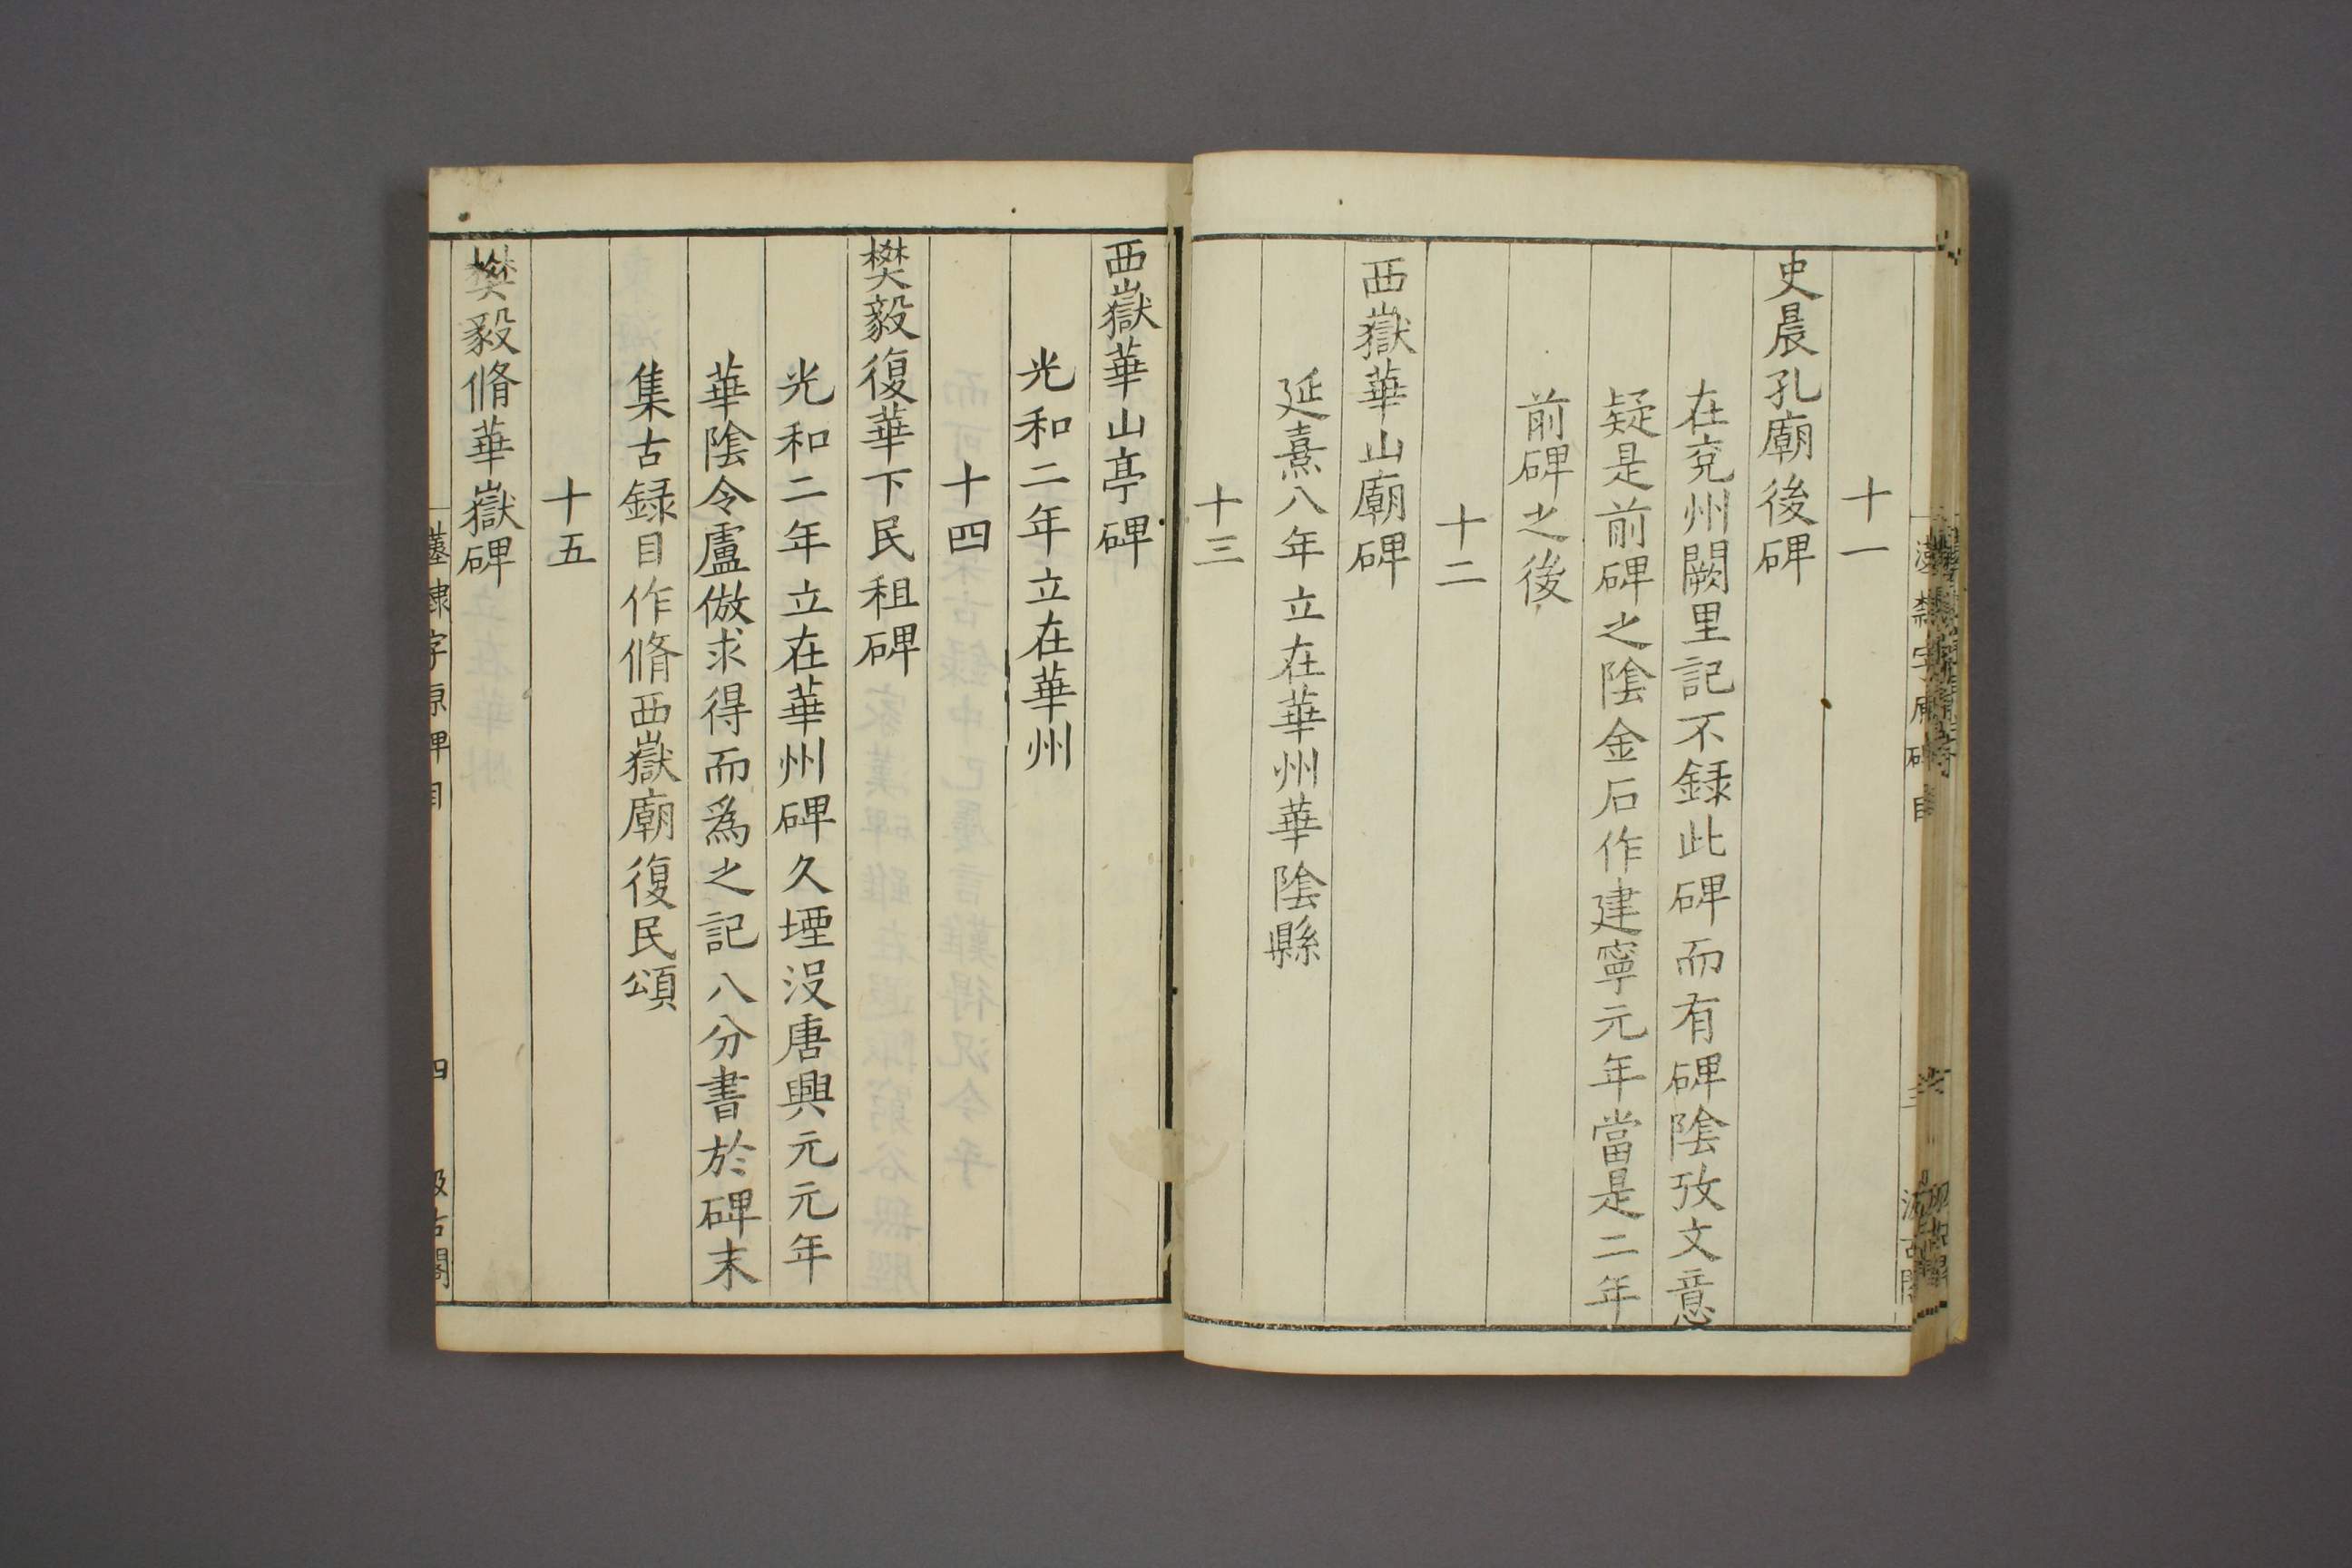 十一
史晨孔廟後碑
在兗州闕里記不録此碑而有碑陰攷文意
疑是前碑之陰金石作建寧元年當是二年
前碑之後
十二
西嶽華山廟碑
延熹八年立在華州華陰縣
十三
西嶽華山亭碑
光和二年立在華州
十四
樊毅復華下民租碑
光和二年立在華州碑久堙没唐興元元年
華陰令盧倣求得而爲之記八分書於碑末
集古録目作脩西嶽廟復民頌
十五
樊毅脩華嶽碑
隸字原碑目
四
汲古閣